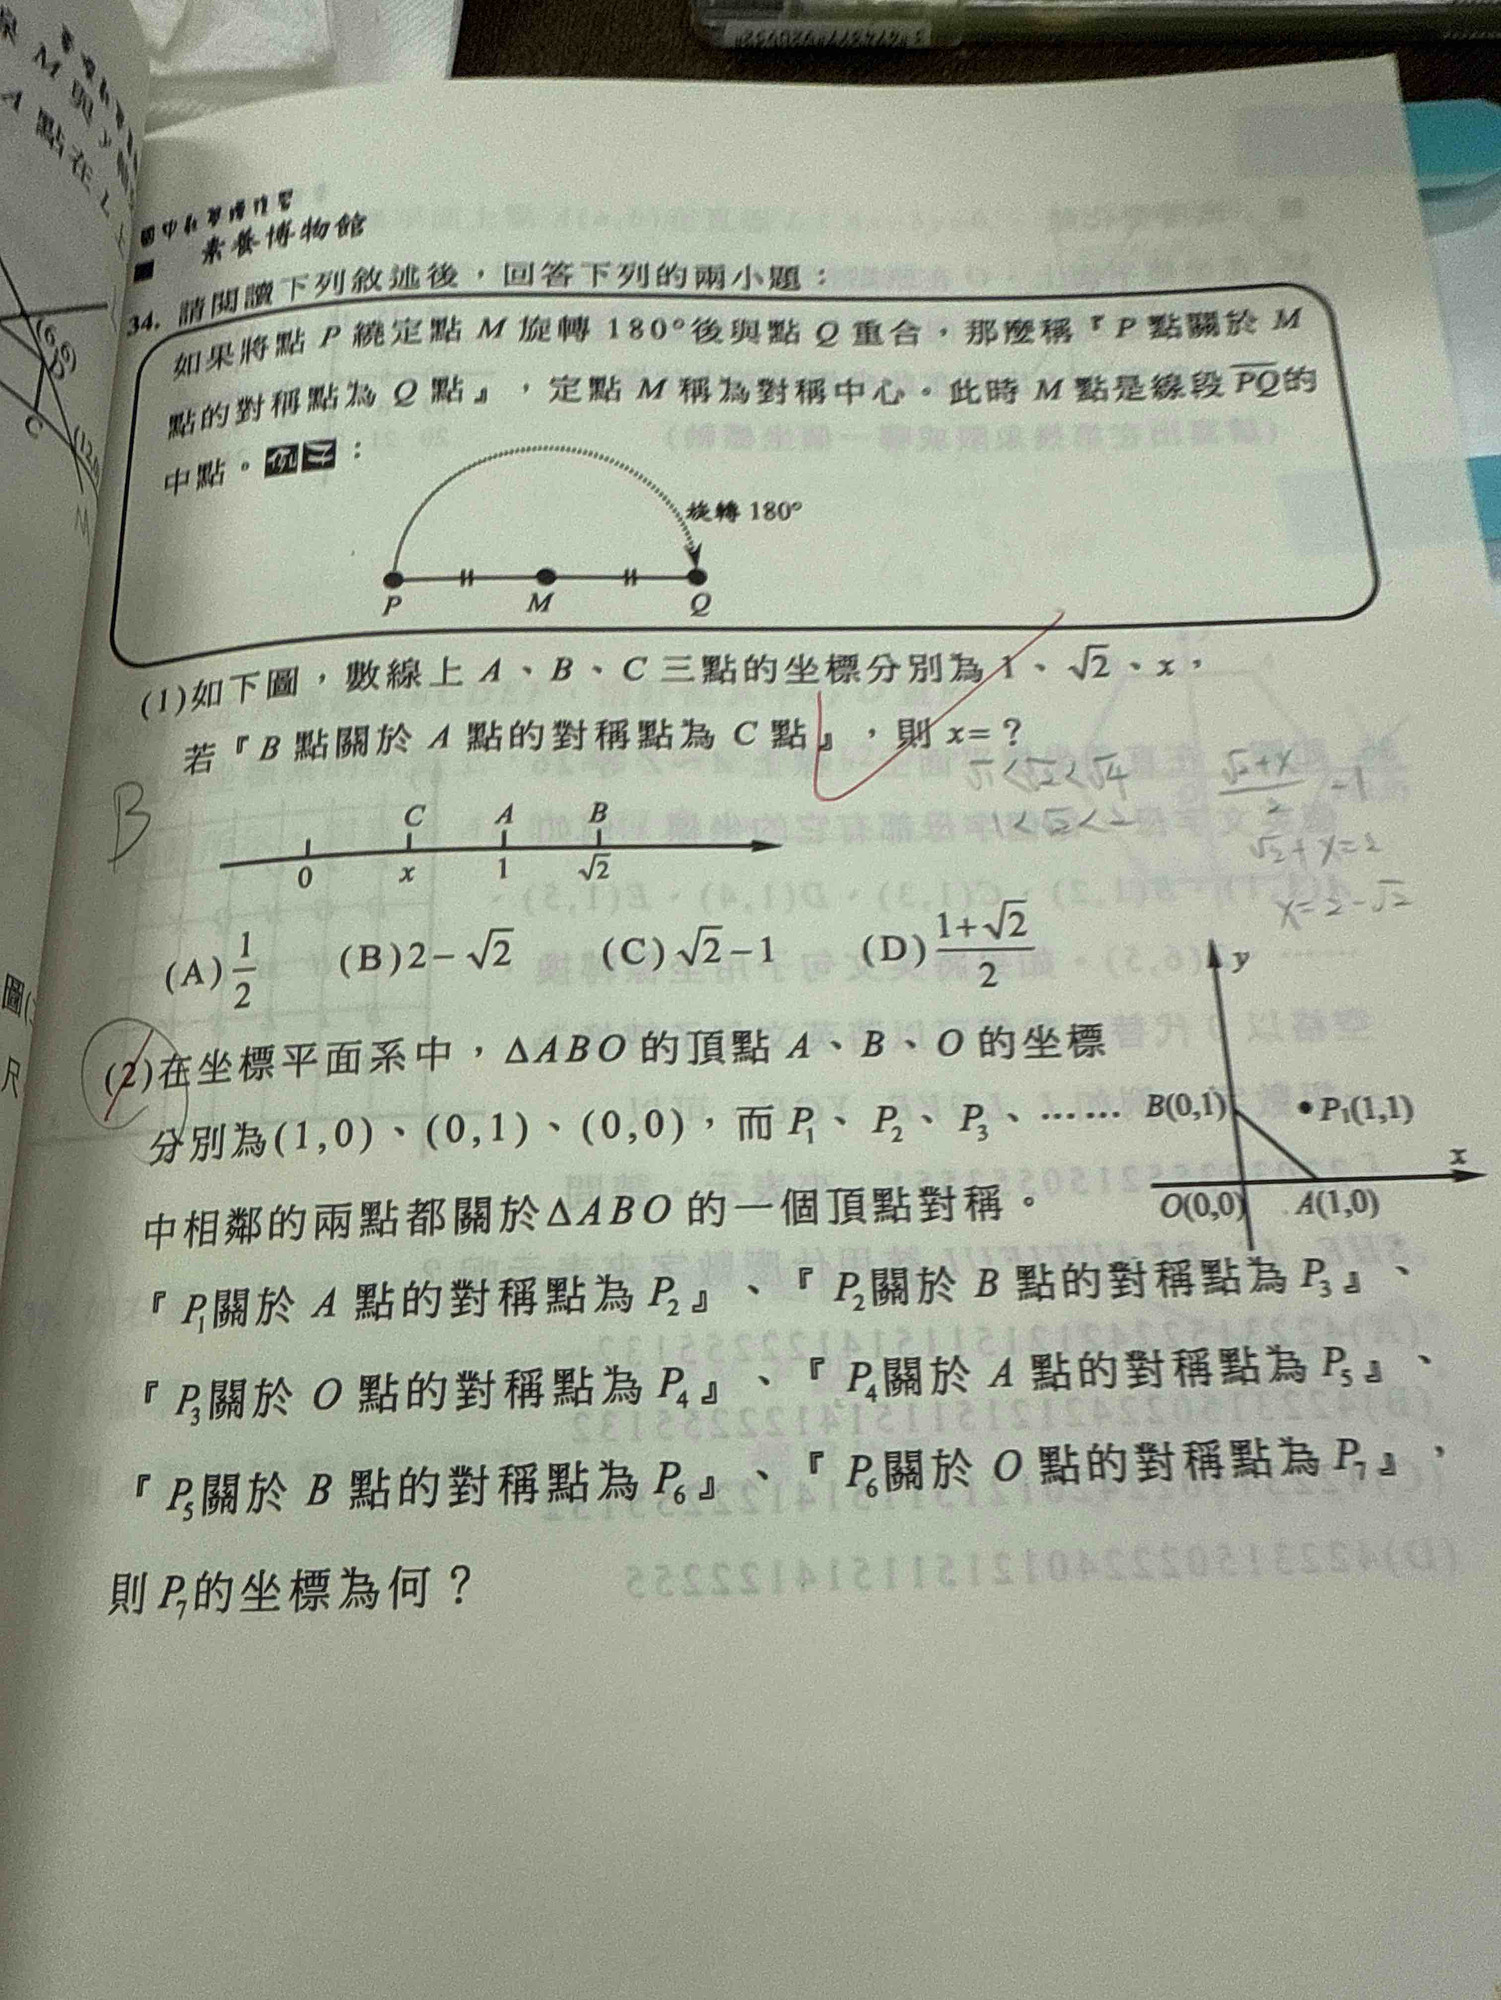 素養博物館
34. 請閱讀下列敘述後，回答下列的兩小題：
如果將點 P 繞定點 M 旋轉 180°後與點 Q 重合，那麼稱『P 點關於 M
點的對稱點為 Q 點』，定點 M 稱為對稱中心。此時 M 點是線段 PQ 的
中點。例子：
旋轉 180°
P M Q
(1)如下圖，數線上 A、B、C 三點的坐標分別為 1、√2、x，
若『B 點關於 A 點的對稱點為 C 點』，則 x=？
√1<√2<√4
1<√2<2
(√2+x)/2 =1
√2+x=2
x=2-√2
B
C A B
0 x 1 √2
(A) 1/2 (B) 2-√2 (C) √2-1 (D) (1+√2)/2
(2)在坐標平面系中，ΔABO 的頂點 A、B、O 的坐標
分別為(1,0)、(0,1)、(0,0)，而 P₁、P₂、P₃、……
中相鄰的兩點都關於ΔABO 的一個頂點對稱。
y
B(0,1) P₁(1,1)
x
O(0,0) A(1,0)
『P₁關於 A 點的對稱點為 P₂』、『P₂關於 B 點的對稱點為 P₃』、
『P₃關於 O 點的對稱點為 P₄』、『P₄關於 A 點的對稱點為 P₅』、
『P₅關於 B 點的對稱點為 P₆』、『P₆關於 O 點的對稱點為 P₇』，
則 P₇的坐標為何？
(6,6)
C
M
圖(
尺